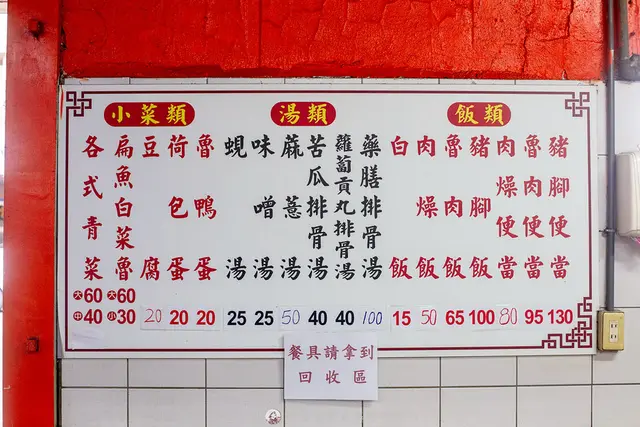 小菜類
各式青菜 大60 中40
扁魚白菜魯 大60 小30
豆腐 20
荷包蛋 20
魯鴨蛋 20
湯類
蜆湯 25
味噌湯 25
蔴薏湯 50
苦瓜排骨湯 40
蘿蔔貢丸排骨湯 40
藥膳排骨湯 100
飯類
白飯 15
肉燥飯 50
魯肉飯 65
豬腳飯 100
肉燥便當 80
魯肉便當 95
豬腳便當 130
餐具請拿到
回收區